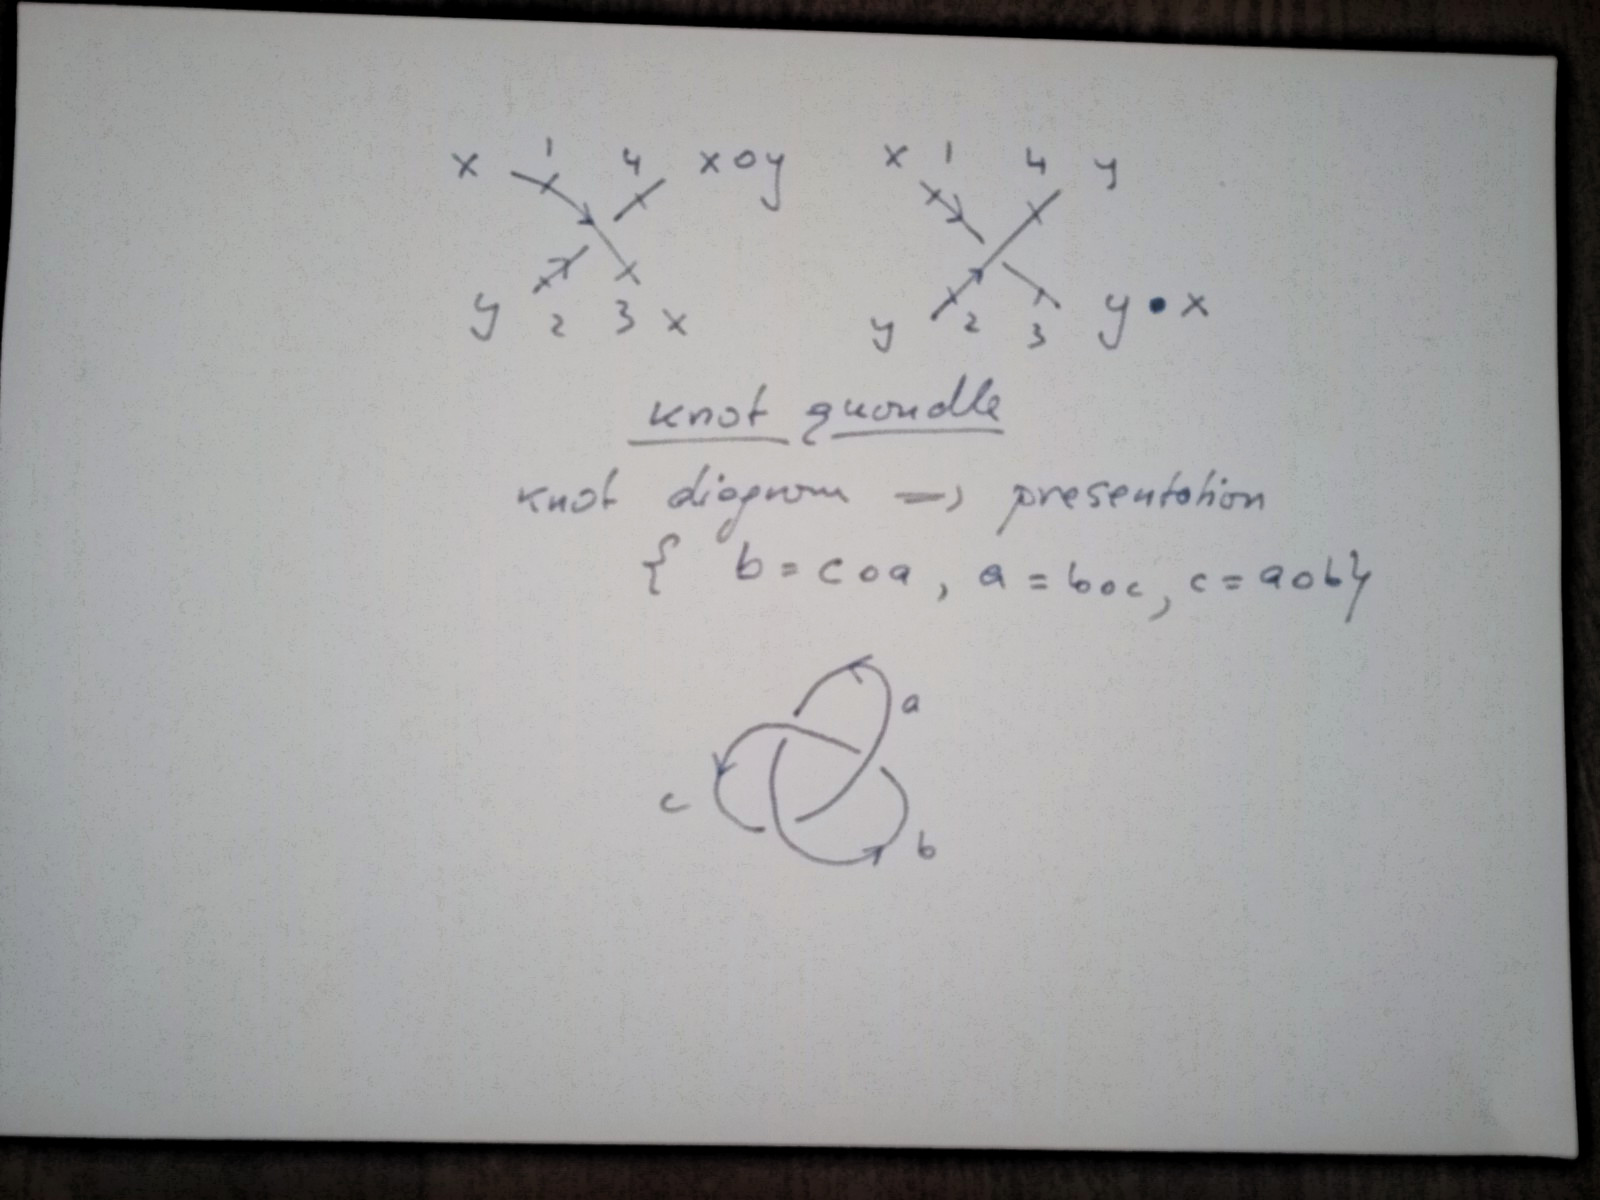 x 1 4 x o y x 1 4 y
y 2 3 x y 2 3 y • x
knot quandle
knot diagram => presentation
{ b = c o a, a = b o c, c = a o b }
a
c
b